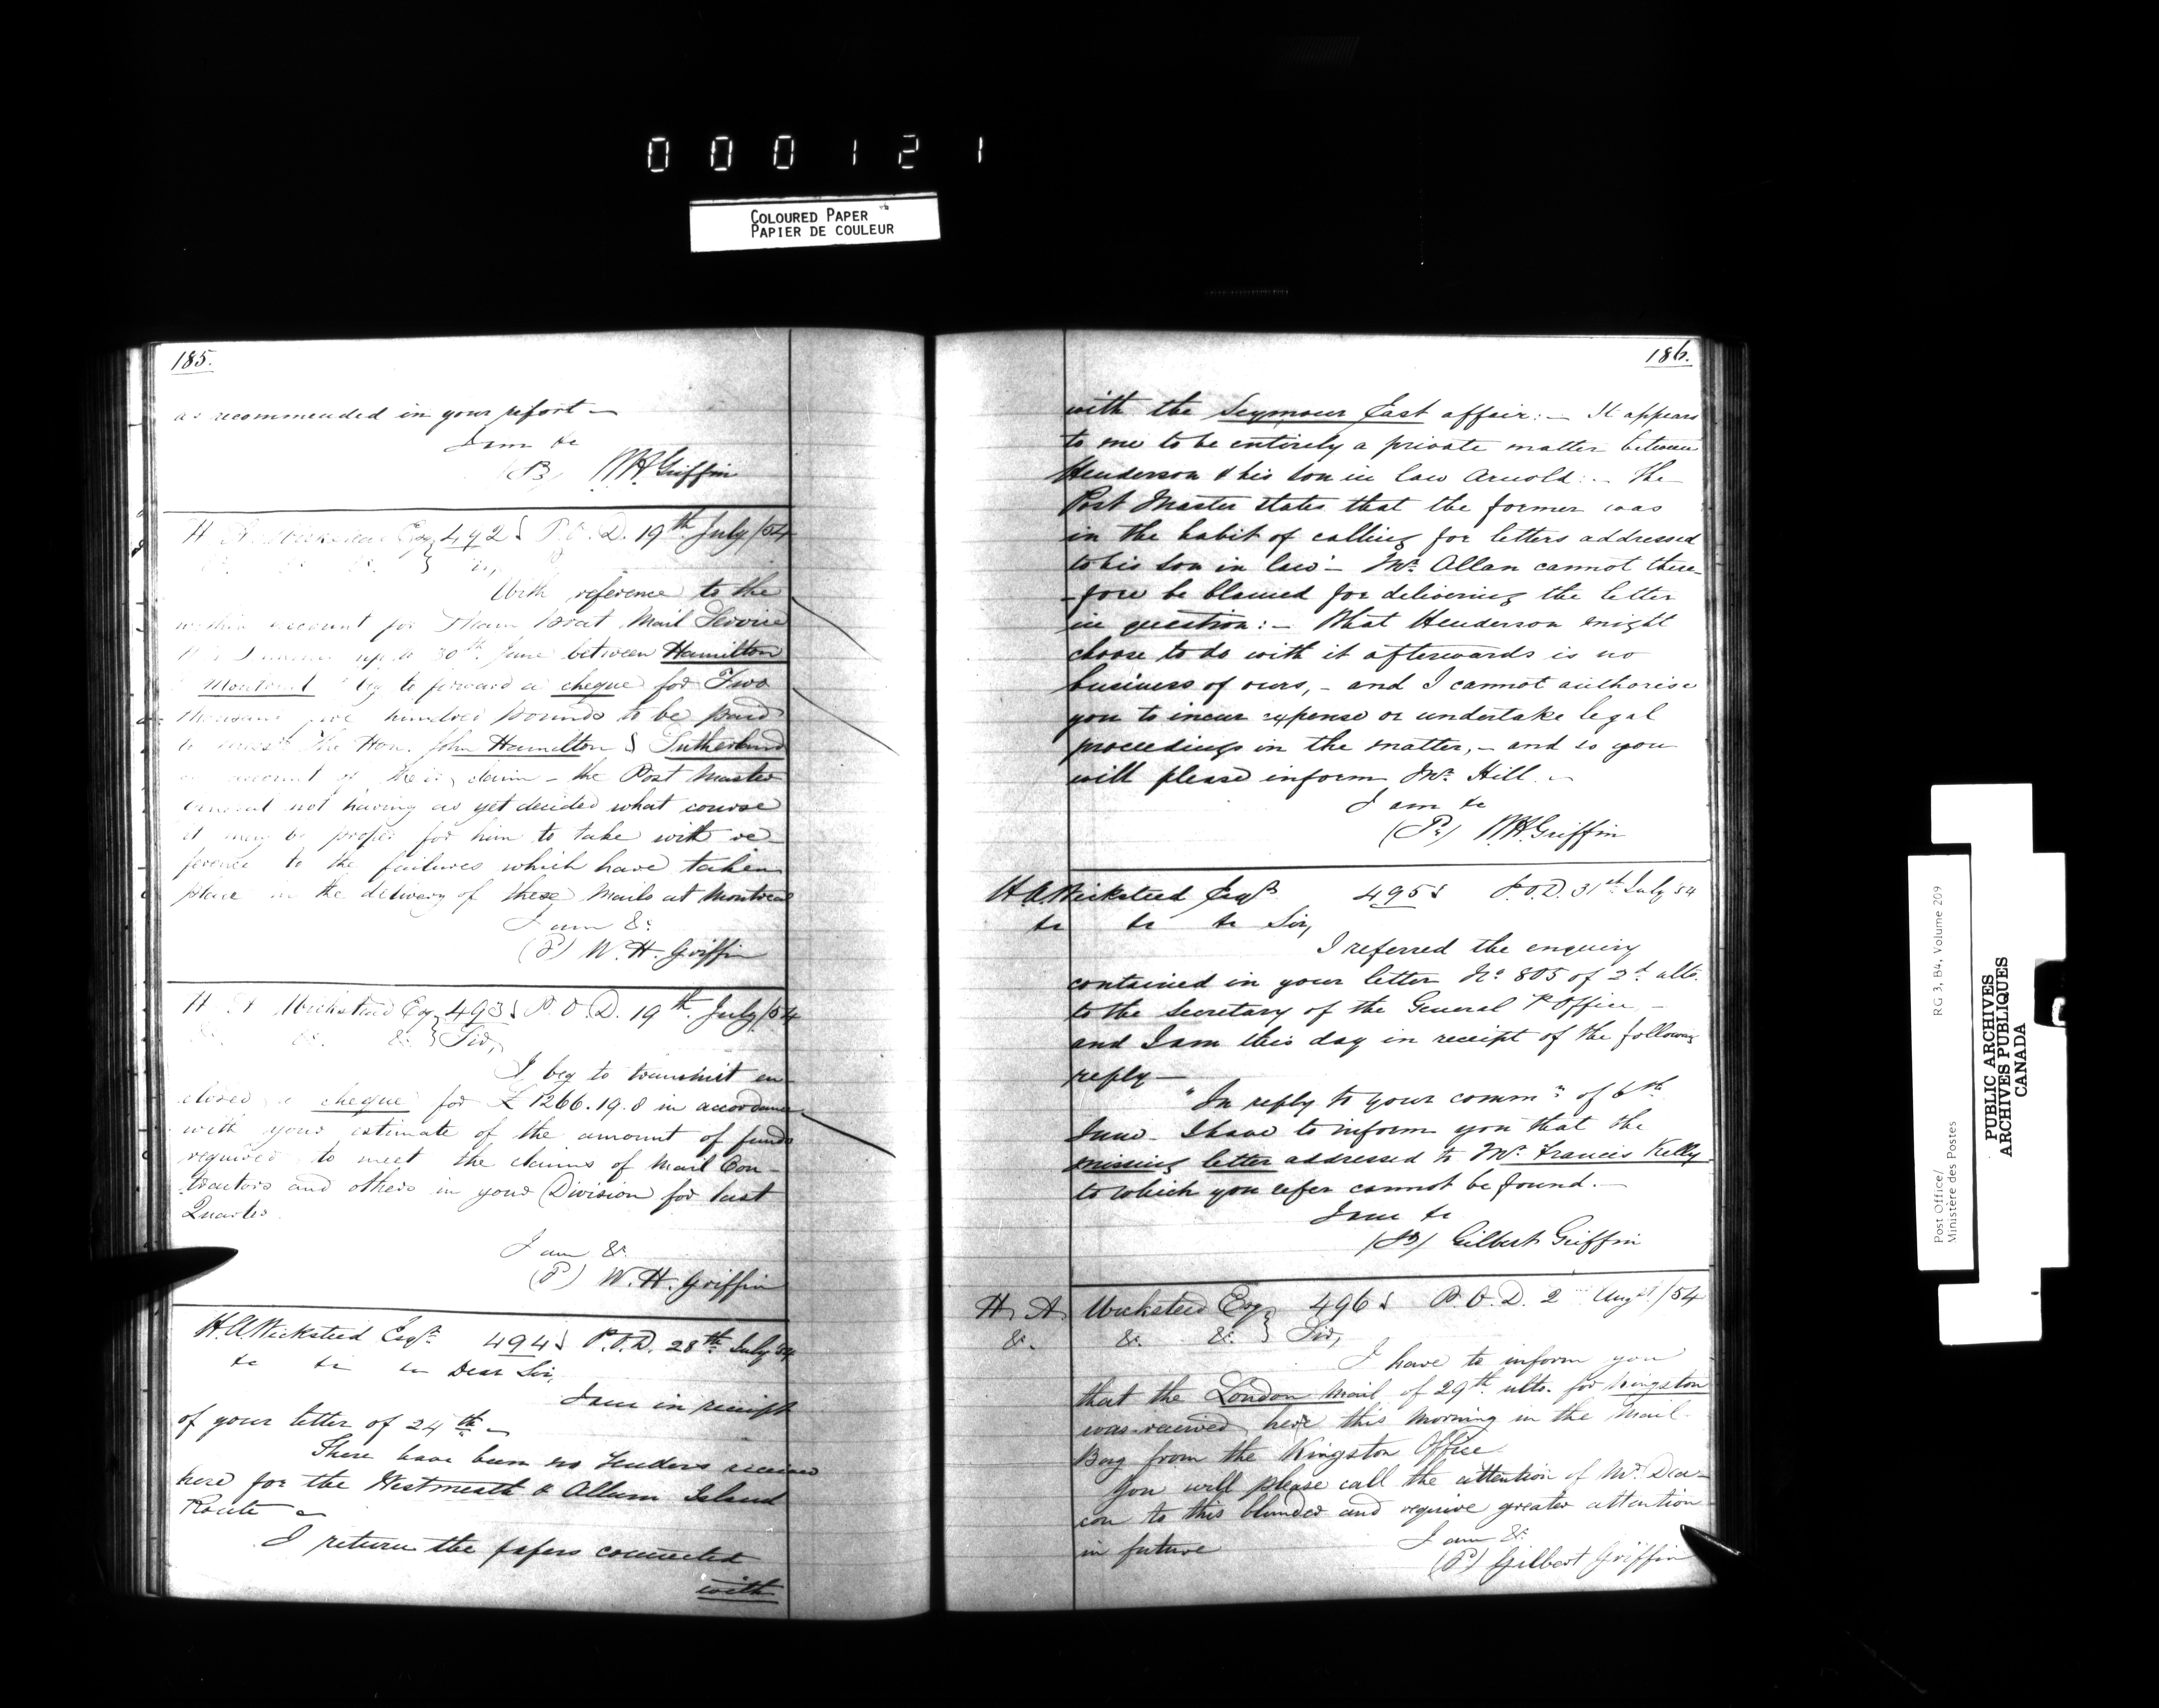 000121
COLOURED PAPER
PAPIER DE COULEUR
185.
as recommended in your report —
I am &c
W.H. Griffin
H A Wicksteed Esq 492 P.O.D. 19th July/54
&c. &c. &c.
With reference to the
within account for Steam Boat Mail Service
up to 30th June between Hamilton
Montreal beg to forward a cheque for Two
thousand five hundred pounds to be paid
to the Hon. John Hamilton & Sutherland
on account of their claim — the Post Master
General not having as yet decided what course
it may be proper for him to take with re-
ference to the failures which have taken
place in the delivery of these Mails at Montreal
I am &c
(P) W. H. Griffin
H A Wicksteed Esq 493 P.O.D. 19th July/54
&c. &c. &c. Sir,
I beg to transmit en
closed a cheque for £1266.19.8 in accordance
with your estimate of the amount of funds
required to meet the claims of Mail Con-
tractors and others in your Division for last
Quarter.
I am &c.
(P) W. H. Griffin
H.A Wicksteed Esqr. 494 P.O.D. 28th July 54
&c &c &c Dear Sir,
I am in receipt
of your letter of 24th —
There have been no Tenders received
here for the Westmeath & Allum Island
Route —
I return the papers connected
with
186.
with the Seymour East affair: — It appears
to me to be entirely a private matter between
Henderson & his son in law Arnold: — The
Post Master states that the former was
in the habit of calling for letters addressed
to his son in law — Mr. Allan cannot there-
-fore be blamed for delivering the letter
in question: — What Henderson might
choose to do with it afterwards is no
business of ours, — and I cannot authorise
you to incur expense or undertake legal
proceedings in the matter, — and so you
will please inform Mr. Hill. —
I am &c
W.H. Griffin
H.A. Wicksteed Esqr 495 P.O.D. 31st July 54
&c &c &c Sir,
I referred the enquiry
contained in your letter No. 805 of 2d ulto.
to the Secretary of the General P Office —
and I am this day in receipt of the following
reply —
"In reply to your commn. of 6th
June — I have to inform you that the
missing letter addressed to Mr. Francis Kelly
to which you refer cannot be found. —
I am &c
Gilbert Griffin
H. A. Wicksteed Esq. 496 P.O.D. 2 Augt./54
&c. &c. &c. Sir,
I have to inform you
that the London Mail of 29th ulto. for Kingston
was received here this morning in the Mail
Bag from the Kingston Office
You will please call the attention of Mr. Dea-
con to this blunder and require greater attention
in future
I am &c.
(P) Gilbert Griffin
Post Office/
Ministère des Postes
RG 3, B4, Volume 209
PUBLIC ARCHIVES
ARCHIVES PUBLIQUES
CANADA